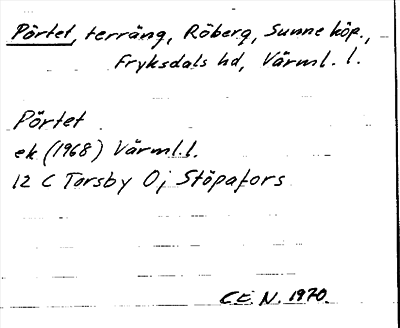 Pörtet, terräng, Röberg, Sunne köp.,
Fryksdals hd, Värml. l.
Pörtet
ek (1968) Värml.l.
12 C Torsby 0j Stöpafors
C.E.N. 1970.